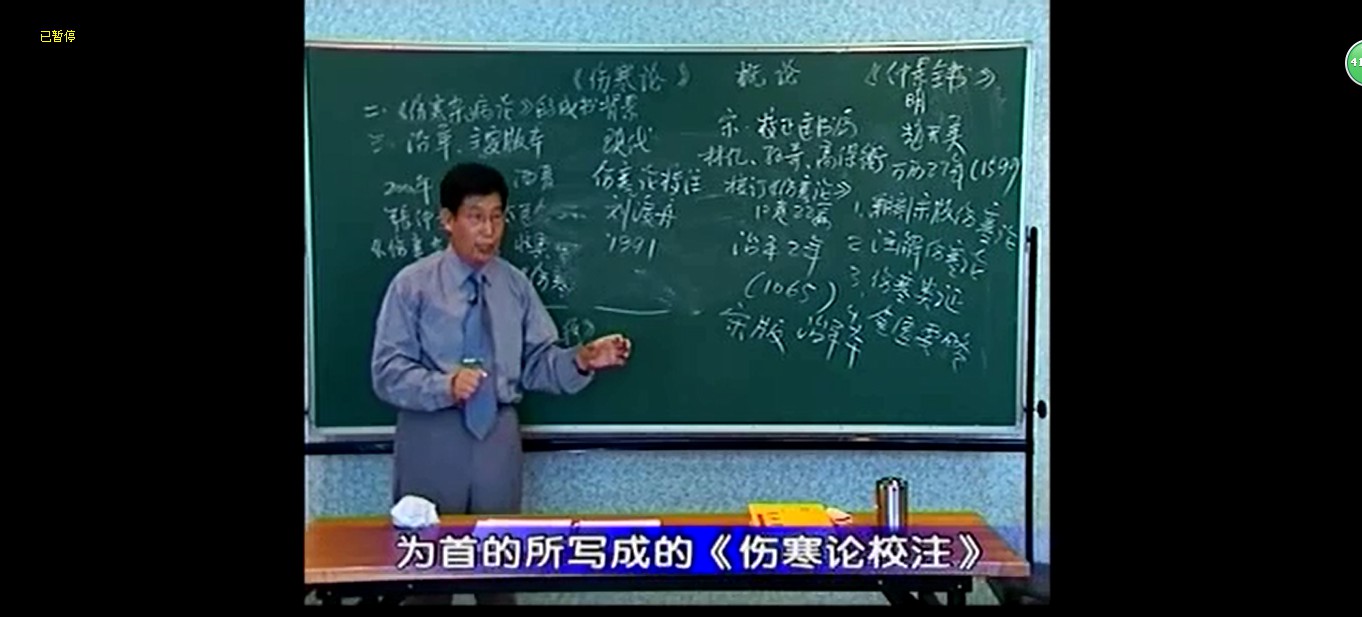 已暂停
41
《伤寒论》 概论 《仲景全书》
明
二.《伤寒杂病论》的成书背景
宋.校正医书局 赵开美
三.沿革、主要版本 现代
林亿、孙奇、高保衡 万历27年(1599)
伤寒论校注 校订《伤寒论》
10卷22篇
1.翻刻宋版伤寒论
刘渡舟
治平2年 2.注解伤寒论
1991
(1065) 3.伤寒类证
宋版 治平本 4.金匮要略
为首的所写成的《伤寒论校注》